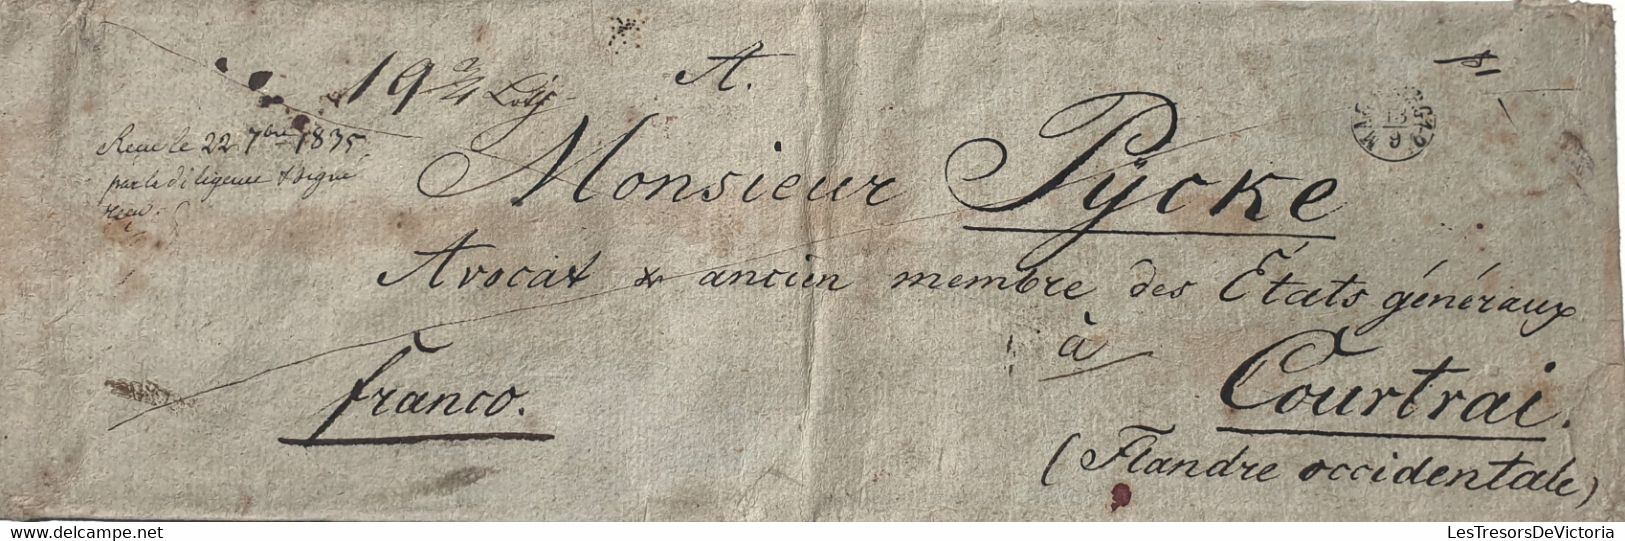 A.
19 3/4 Loth
Reçu le 22 7bre 1835
par la diligence & signé
reçu.
Monsieur Pÿcke
Avocat & ancien membre des États généraux
à
Courtrai.
(Flandre occidentale)
franco.
13
9
delcampe.net
LesTresorsDeVictoria